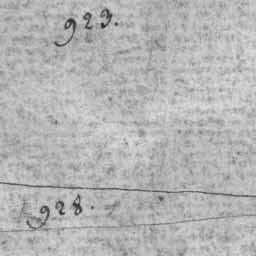 923.
928.